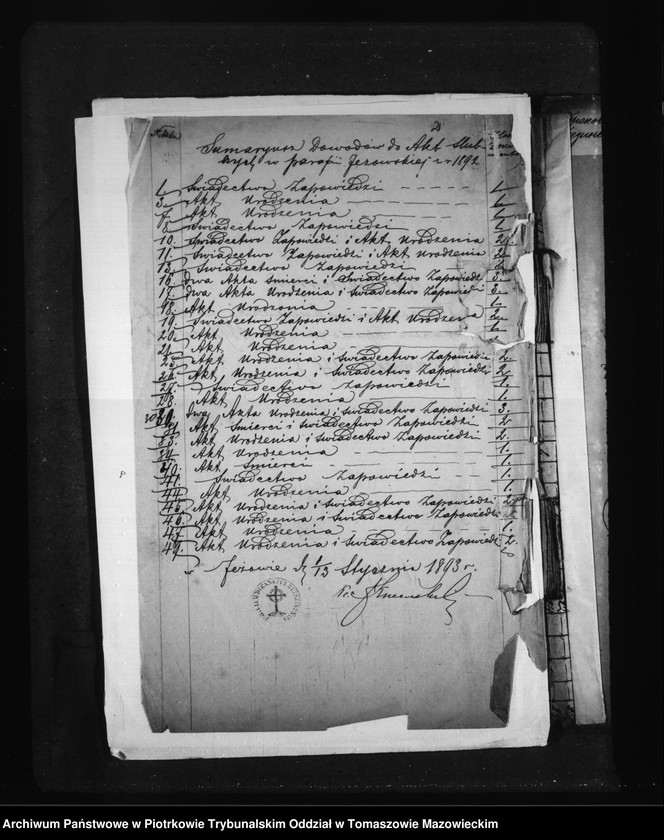 Sumaryusz Dowodów do Akt Slub
nych w parafii Jeżowskiej z r. 1892
1. Świadectwo Zapowiedzi 1.
3. Akt Urodzenia 1.
7. Akt Urodzenia 1.
8. Świadectwo Zapowiedzi 1.
10. Świadectwo Zapowiedzi i Akt Urodzenia 2.
11. Świadectwo Zapowiedzi i Akt Urodzenia 2.
13. Świadectwo Zapowiedzi
16. Dwa Akta Śmierci i Świadectwo Zapowiedzi 3.
17. Dwa Akta Urodzenia i Świadectwo Zapowiedzi 3.
18. Akt Urodzenia 1.
19. Świadectwo Zapowiedzi i Akt Urodzenia 2.
20. Akt Urodzenia 1.
Akt Urodzenia
Akt Urodzenia i Świadectwo Zapowiedzi 2.
Akt Urodzenia i Świadectwo Zapowiedzi 2.
Świadectwo Zapowiedzi 1.
28. Akt Urodzenia 1.
Dwa Akta Urodzenia i Świadectwo Zapowiedzi 3.
Akt Śmierci i Świadectwo Zapowiedzi 2.
33. Akt Urodzenia i Świadectwo Zapowiedzi 2.
34. Akt Urodzenia 1.
40. Akt Śmierci 1.
41. Świadectwo Zapowiedzi 1.
44. Akt Urodzenia 1.
Akt Urodzenia i Świadectwo Zapowiedzi 2.
46. Akt Urodzenia i Świadectwo Zapowiedzi
47. Akt Urodzenia 1.
49. Akt Urodzenia i Świadectwo Zapowiedzi 2.
w Jeżowie d. 1/13 Stycznia 1893 r.
Archiwum Państwowe w Piotrkowie Trybunalskim Oddział w Tomaszowie Mazowieckim